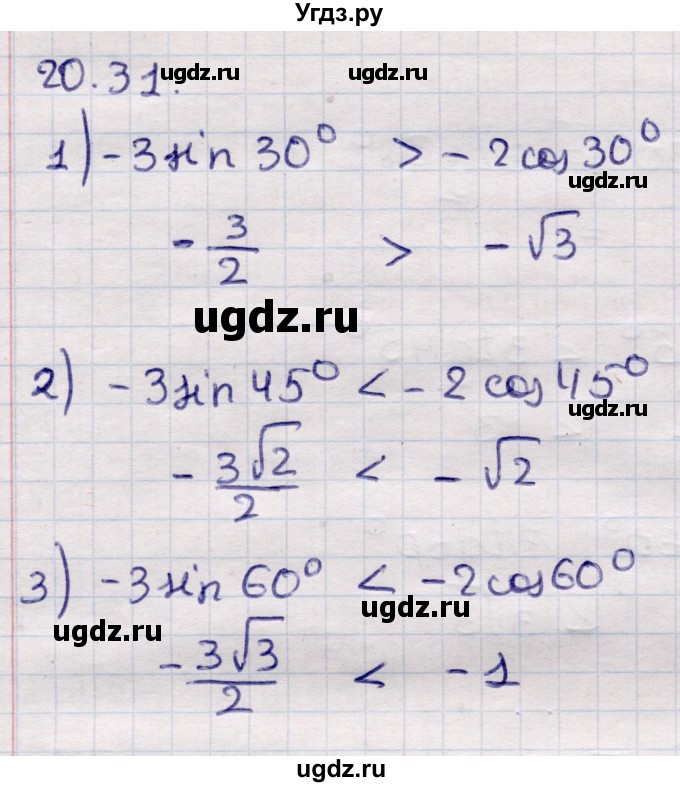 Угдз.ру
20.31.
ugdz.ru ugdz.ru
1) -3 sin 30° > - 2 cos 30°
ugdz.ru
- 3/2 > - √3
ugdz.ru
2) - 3 sin 45° < - 2 cos 45°
ugdz.ru
- 3√2/2 < - √2
3) -3 sin 60° < -2 cos 60°
ugdz.ru
ugdz.ru
- 3√3/2 < - 1
ugdz.ru